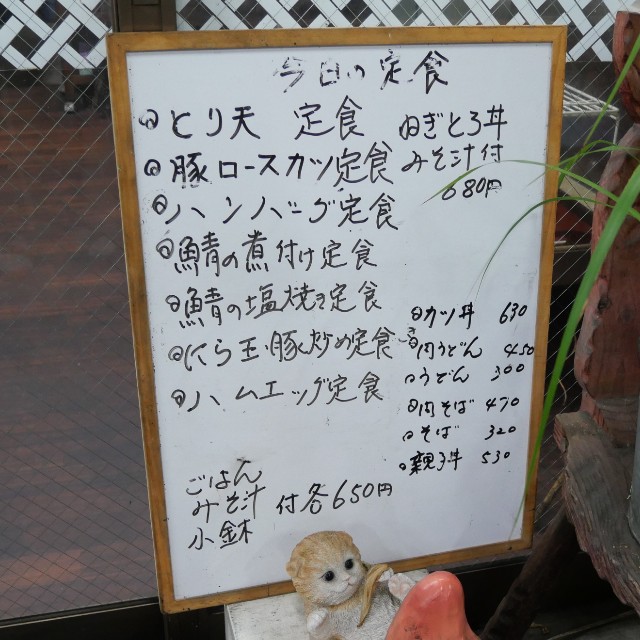 今日の定食
とり天 定食
豚ロースカツ定食
ハンバーグ定食
鯖の煮付け定食
鯖の塩焼き定食
にら玉・豚炒め定食
ハムエッグ定食
ごはん
みそ汁
小鉢
付各650円
ねぎとろ丼
みそ汁付
680円
カツ丼 630
肉うどん 450
うどん 300
肉そば 470
そば 320
親子丼 530